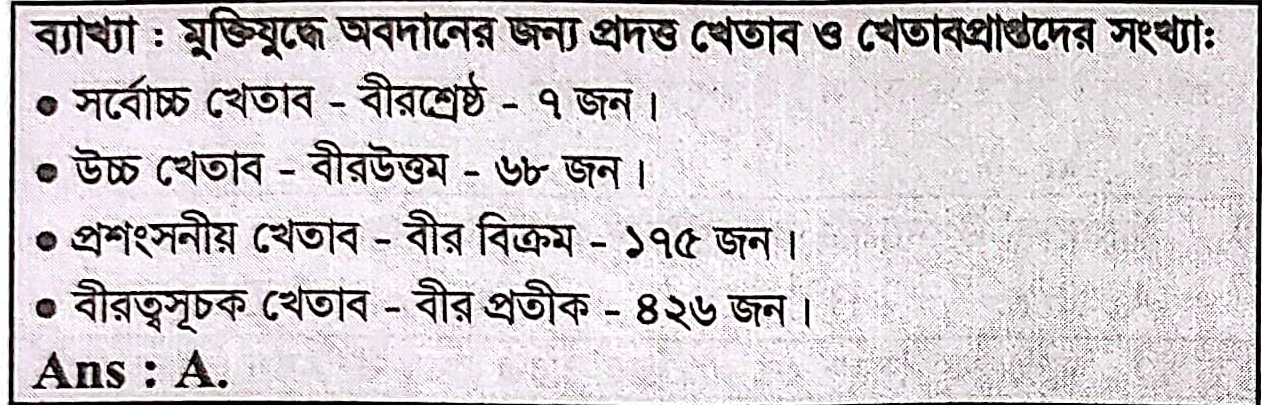 ব্যাখ্যা : মুক্তিযুদ্ধে অবদানের জন্য প্রদত্ত খেতাব ও খেতাবপ্রাপ্তদের সংখ্যাঃ
• সর্বোচ্চ খেতাব - বীরশ্রেষ্ঠ - ৭ জন।
• উচ্চ খেতাব - বীরউত্তম - ৬৮ জন।
• প্রশংসনীয় খেতাব - বীর বিক্রম - ১৭৫ জন।
• বীরত্বসূচক খেতাব - বীর প্রতীক - ৪২৬ জন।
Ans : A.